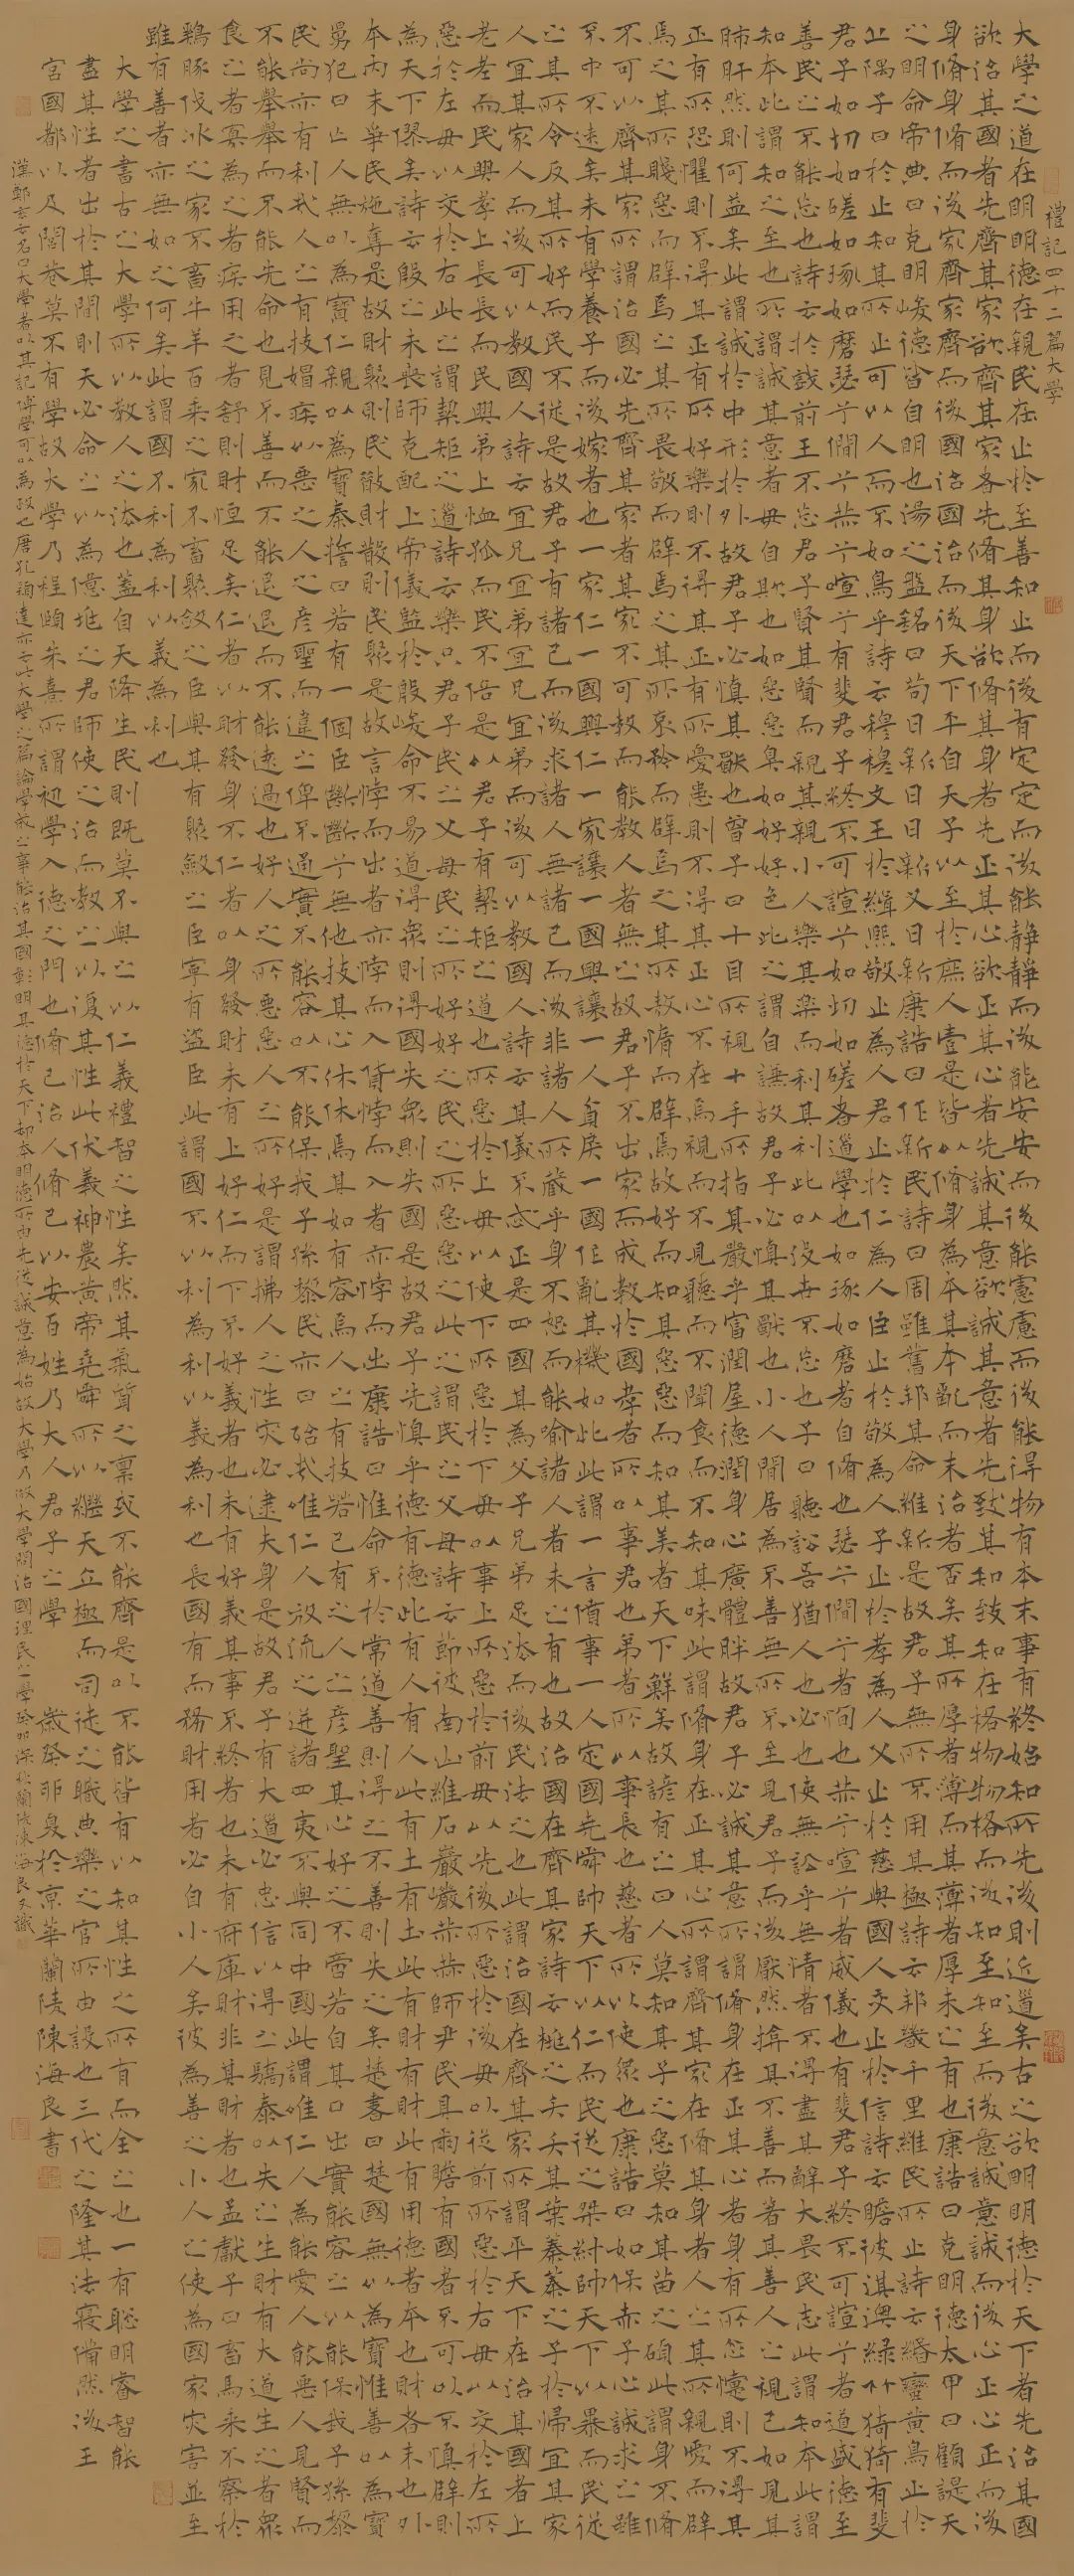 禮記四十二篇大學
大學之道在明明德在親民在止於至善知止而後有定定而後能靜靜而後能安安而後能慮慮而後能得物有本末事有終始知所先後則近道矣古之欲明明德於天下者先治其國
欲治其國者先齊其家欲齊其家者先脩其身欲脩其身者先正其心欲正其心者先誠其意欲誠其意者先致其知致知在格物物格而後知至知至而後意誠意誠而後心正心正而後
身脩身脩而後家齊家齊而後國治國治而後天下平自天子以至於庶人壹是皆以脩身為本其本亂而末治者否矣其所厚者薄而其薄者厚未之有也康誥曰克明德太甲曰顧諟天
之明命帝典曰克明峻德皆自明也湯之盤銘曰苟日新日日新又日新康誥曰作新民詩曰周雖舊邦其命維新是故君子無所不用其極詩云邦畿千里維民所止詩云緡蠻黃鳥止於
丘隅子曰於止知其所止可以人而不如鳥乎詩云穆穆文王於緝熙敬止為人君止於仁為人臣止於敬為人子止於孝為人父止於慈與國人交止於信詩云瞻彼淇澳綠竹猗猗有斐
君子如切如磋如琢如磨瑟兮僩兮赫兮喧兮有斐君子終不可諠兮如切如磋者道學也如琢如磨者自脩也瑟兮僩兮者恂慄也赫兮喧兮者威儀也有斐君子終不可諠兮者道盛德至
善民之不能忘也詩云於戲前王不忘君子賢其賢而親其親小人樂其樂而利其利此以沒世不忘也子曰聽訟吾猶人也必也使無訟乎無情者不得盡其辭大畏民志此謂知本此謂
知本此謂知之至也所謂誠其意者毋自欺也如惡惡臭如好好色此之謂自謙故君子必慎其獨也小人閒居為不善無所不至見君子而後厭然揜其不善而著其善人之視己如見其
肺肝然則何益矣此謂誠於中形於外故君子必慎其獨也曾子曰十目所視十手所指其嚴乎富潤屋德潤身心廣體胖故君子必誠其意所謂脩身在正其心者身有所忿懥則不得其
正有所恐懼則不得其正有所好樂則不得其正有所憂患則不得其正心不在焉視而不見聽而不聞食而不知其味此謂脩身在正其心所謂齊其家在脩其身者人之其所親愛而辟
焉之其所賤惡而辟焉之其所畏敬而辟焉之其所哀矜而辟焉之其所敖惰而辟焉故好而知其惡惡而知其美者天下鮮矣故諺有之曰人莫知其子之惡莫知其苗之碩此謂身不脩
不可以齊其家所謂治國必先齊其家者其家不可教而能教人者無之故君子不出家而成教於國孝者所以事君也弟者所以事長也慈者所以使眾也康誥曰如保赤子心誠求之雖
不中不遠矣未有學養子而後嫁者也一家仁一國興仁一家讓一國興讓一人貪戾一國作亂其機如此此謂一言僨事一人定國堯舜帥天下以仁而民從之桀紂帥天下以暴而民從
之其所令反其所好而民不從是故君子有諸己而後求諸人無諸己而後非諸人所藏乎身不恕而能喻諸人者未之有也故治國在齊其家詩云桃之夭夭其葉蓁蓁之子於歸宜其家
人宜其家人而後可以教國人詩云宜兄宜弟宜兄宜弟而後可以教國人詩云其儀不忒正是四國其為父子兄弟足法而後民法之也此謂治國在齊其家所謂平天下在治其國者上
老老而民興孝上長長而民興弟上恤孤而民不倍是以君子有絜矩之道也所惡於上毋以使下所惡於下毋以事上所惡於前毋以先後所惡於後毋以從前所惡於右毋以交於左所
惡於左毋以交於右此之謂絜矩之道詩云樂只君子民之父母民之所好好之民之所惡惡之此之謂民之父母詩云節彼南山維石巖巖赫赫師尹民具爾瞻有國者不可以不慎辟則
為天下僇矣詩云殷之未喪師克配上帝儀監於殷峻命不易道得眾則得國失眾則失國是故君子先慎乎德有德此有人有人此有土有土此有財有財此有用德者本也財者末也外
本內末爭民施奪是故財聚則民散財散則民聚是故言悖而出者亦悖而入貨悖而入者亦悖而出康誥曰惟命不於常道善則得之不善則失之矣楚書曰楚國無以為寶惟善以為寶
舅犯曰亡人無以為寶仁親以為寶秦誓曰若有一個臣斷斷兮無他技其心休休焉其如有容焉人之有技若己有之人之彥聖其心好之不啻若自其口出實能容之以能保我子孫黎
民尚亦有利哉人之有技媢疾以惡之人之彥聖而違之俾不通實不能容以不能保我子孫黎民亦曰殆哉唯仁人放流之迸諸四夷不與同中國此謂唯仁人為能愛人能惡人見賢而
不能舉舉而不能先命也見不善而不能退退而不能遠過也好人之所惡惡人之所好是謂拂人之性災必逮夫身是故君子有大道必忠信以得之驕泰以失之生財有大道生之者眾
食之者寡為之者疾用之者舒則財恒足矣仁者以財發身不仁者以身發財未有上好仁而下不好義者也未有好義其事不終者也未有府庫財非其財者也孟獻子曰畜馬乘不察於
鷄豚伐冰之家不畜牛羊百乘之家不畜聚斂之臣與其有聚斂之臣寧有盜臣此謂國不以利為利以義為利也長國有而務財用者必自小人矣彼為善之小人之使為國家災害並至
雖有善者亦無如之何矣此謂國不利為利以義為利也
大學之書古之大學所以教人之法也蓋自天降生民則既莫不與之以仁義禮智之性矣然其氣質之稟或不能齊是以不能皆有以知其性之所有而全之也一有聰明睿智能
盡其性者出於其閒則天必命之以為億兆之君師使之治而教之以復其性此伏羲神農黃帝堯舜所以繼天立極而司徒之職典樂之官所由設也三代之隆其法寖備然後王
宮國都以及閭巷莫不有學故大學乃程頤朱熹所謂初學入德之門也脩己治人脩己以安百姓乃大人君子之學 歲癸卯於京華蘭陵陳海良書
漢鄭玄云名曰大學者以其記博學可以為政也唐孔穎達亦云此大學之篇論學成之事能治其國彰明其德於天下却本明德所由先從誠意為始故大學乃大學問治國理民之學蘭陵陳海良又識